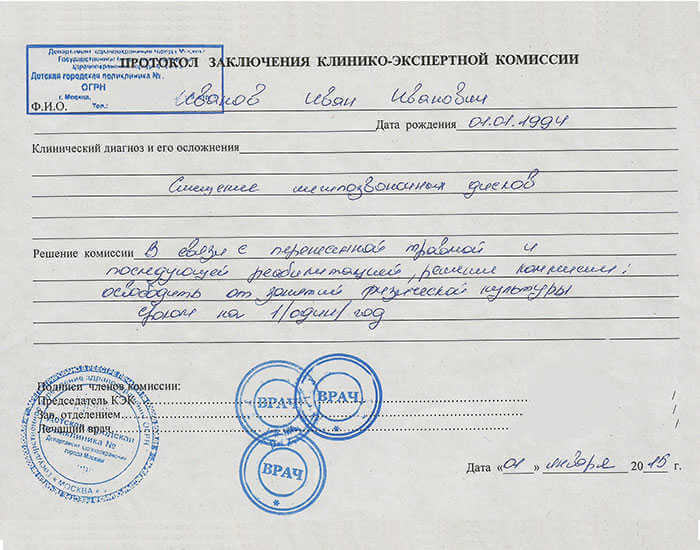 Департамент здравоохранения города Москвы
Государственное
здравоохранения
Детская городская поликлиника №
ОГРН
г. Москва,
Тел.:
ПРОТОКОЛ ЗАКЛЮЧЕНИЯ КЛИНИКО-ЭКСПЕРТНОЙ КОМИССИИ
Ф.И.О. Иванов Иван Иванович
Дата рождения 01.01.1994
Клинический диагноз и его осложнения
Смещение межпозвоночных дисков
Решение комиссии В связи с перенесенной травмой и
последующей реабилитацией, решение комиссии:
освободить от занятий физической культуры
сроком на 1/один/ год
Подписи членов комиссии:
Председатель КЭК
Зав. отделением
Лечащий врач
ВРАЧ
ВРАЧ
ВРАЧ
Департамент здравоохранения
города Москвы
* МОСКВА *
Дата «01» января 2015 г.